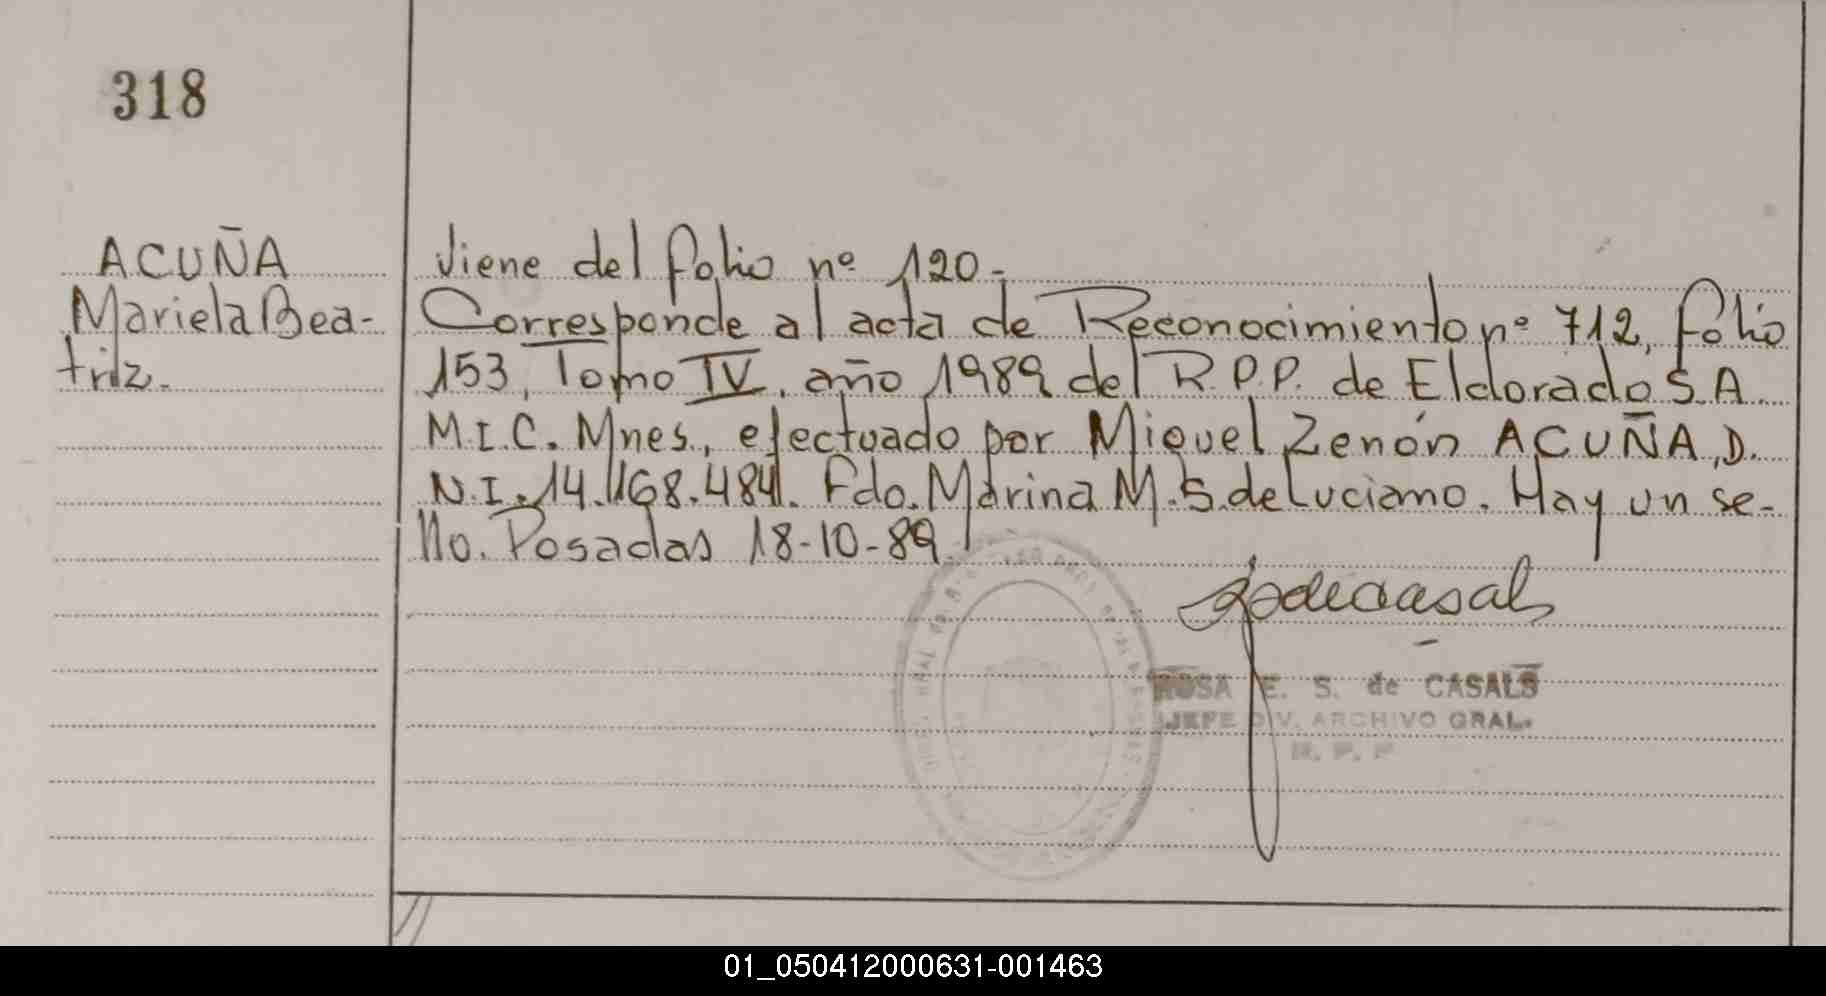 318
ACUÑA
Mariela Bea-
triz.
Viene del folio nº 120.-
Corresponde al acta de Reconocimiento nº 712, folio
153, Tomo IV, año 1989 del R.P.P. de Eldorado S.A.
M.I.C. Mnes., efectuado por Miguel Zenón ACUÑA, D.
N.I. 14.168.484. Fdo. Marina M. S. de Luciano. Hay un se-
llo. Posadas 18-10-89
ROSA E. S. de CASALS
JEFE DIV. ARCHIVO GRAL.
R. P. P
01_050412000631-001463